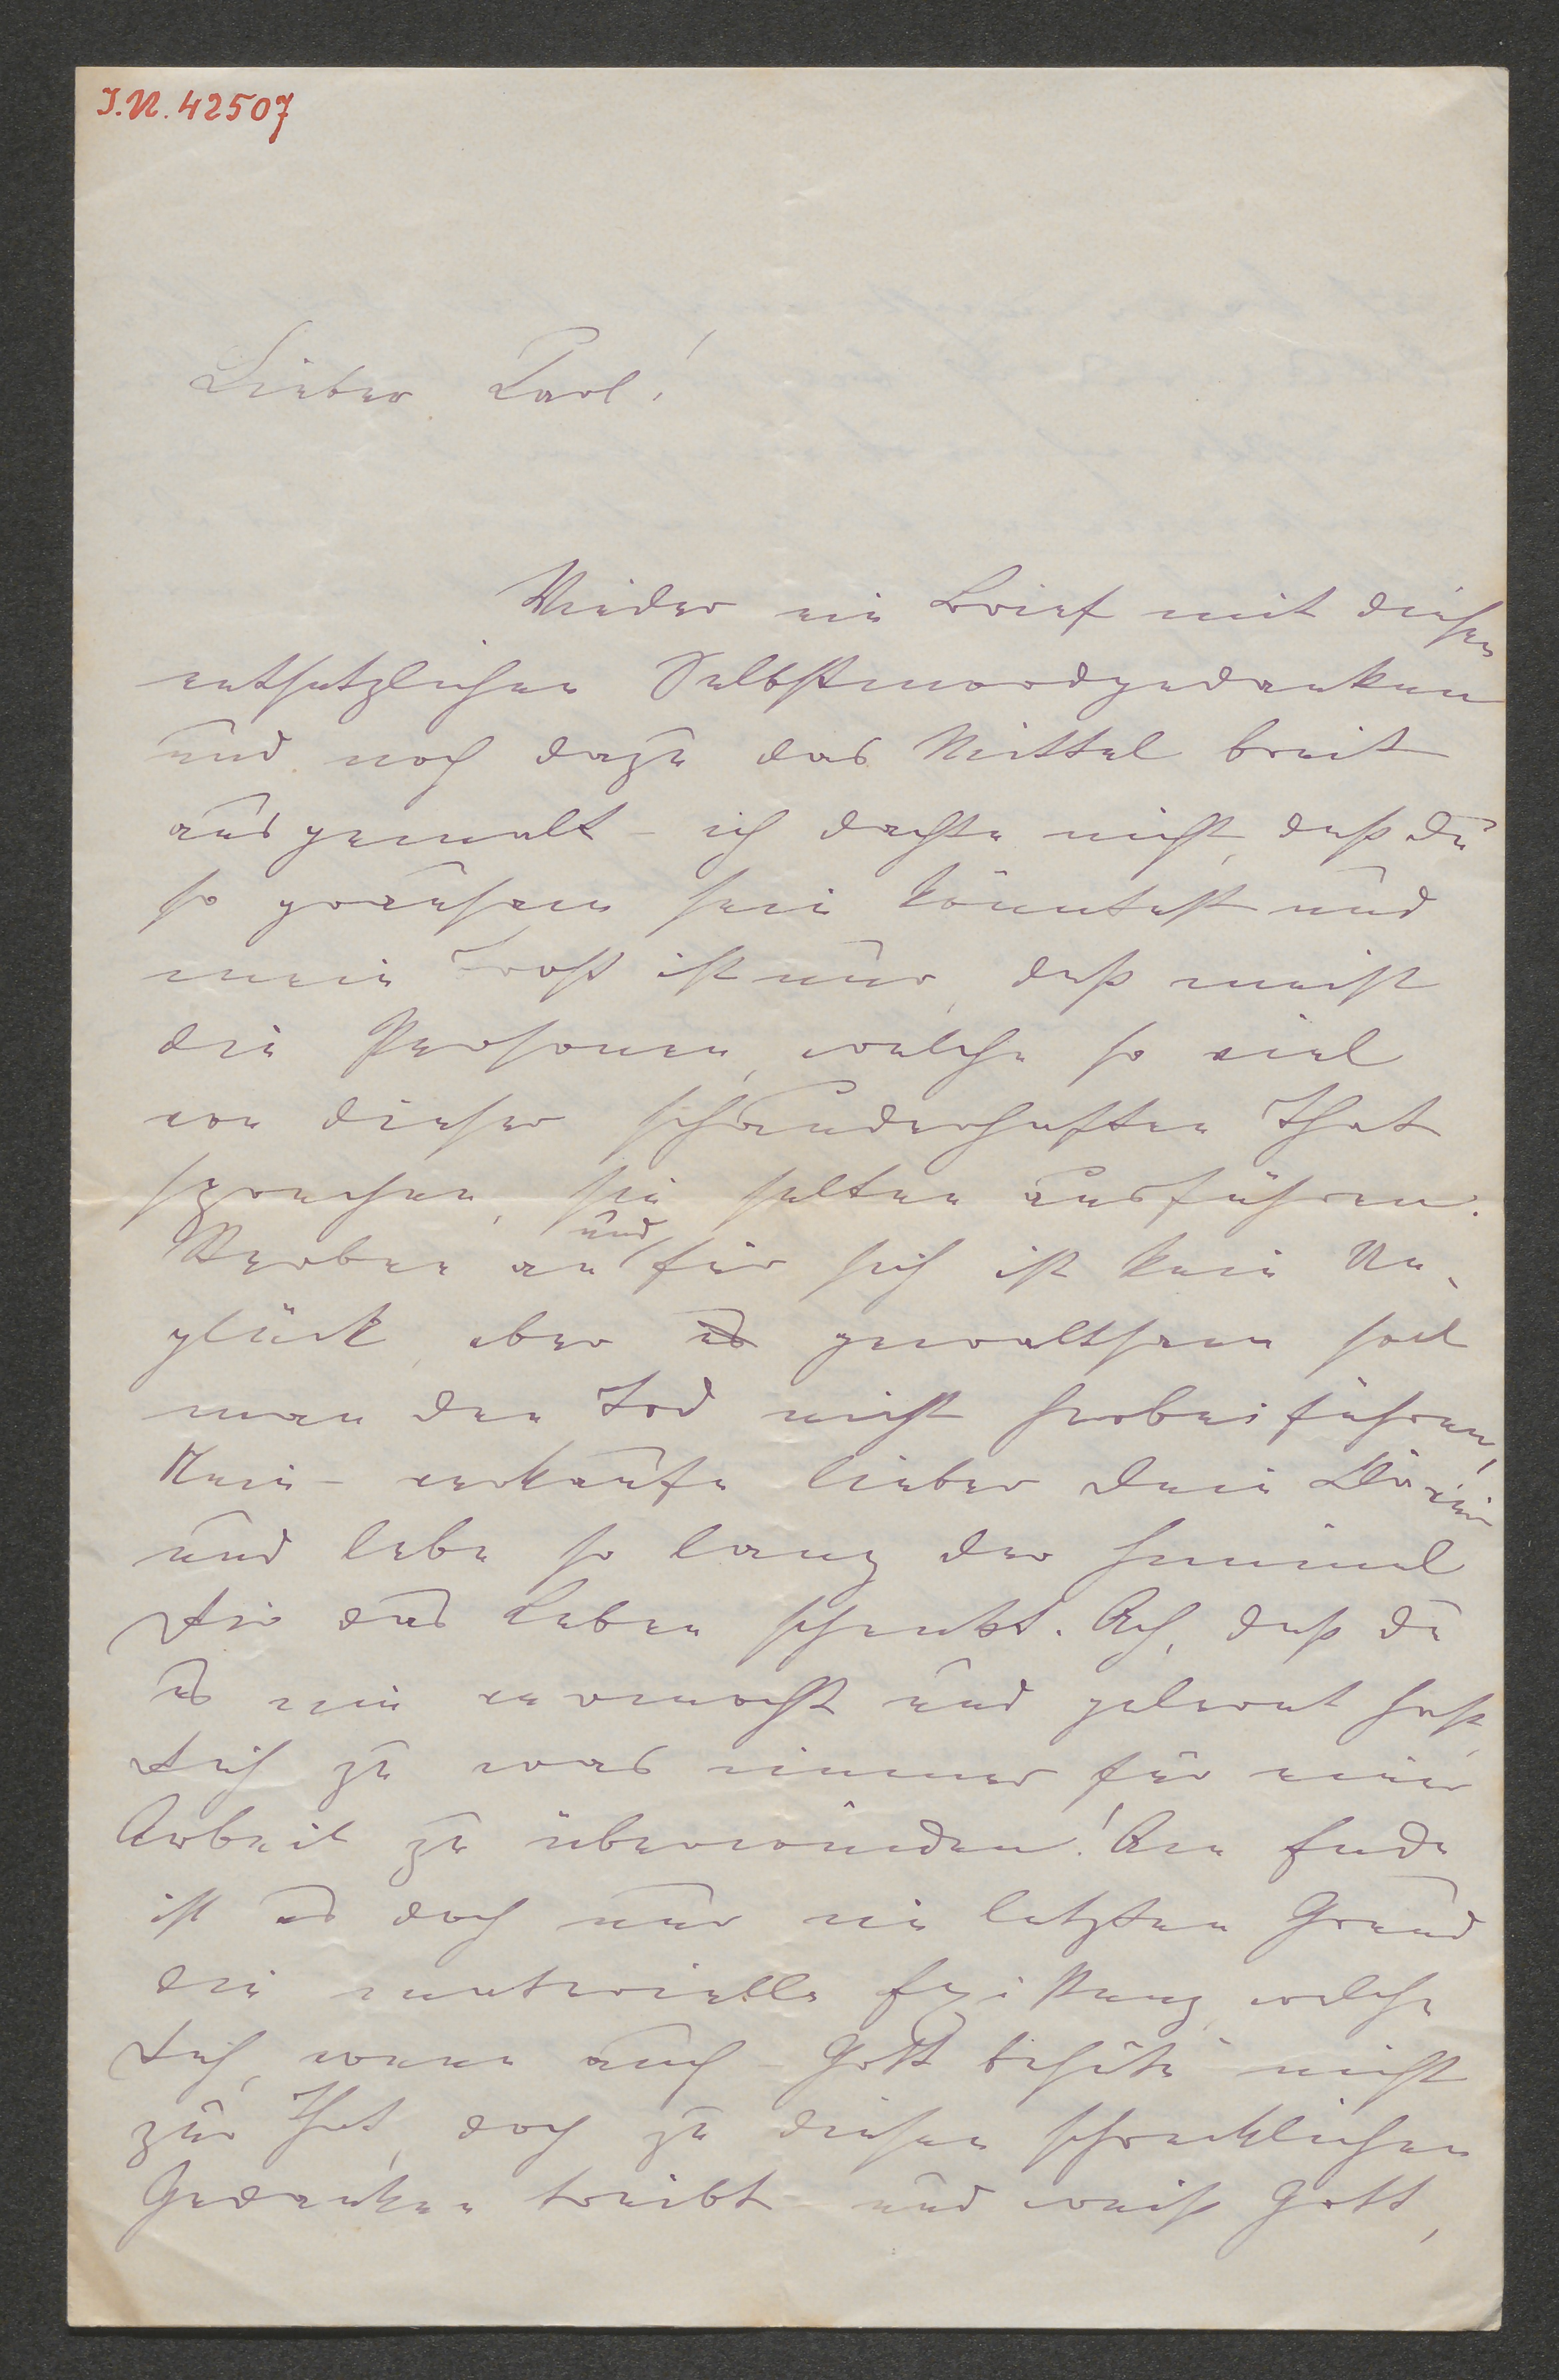 I.N. 42507
Lieber Carl!
Wieder ein Brief mit diesen
entsetzlichen Selbstmordgedanken
und noch dazu das Mittel breit
ausgemalt – ich dachte nicht, daß Du
so grausam sein könntest und
mein Trost ist nur, daß meist
die Personen, welche so viel
von dieser schauderhaften That
sprechen, sie selten ausführen.
Sterben an und für sich ist kein Un-
glück, aber es gewaltsam soll
man den Tod nicht herbeiführen,
Nein – verkaufe lieber Dein
und lebe so lang der Himmel
Dir das Leben schenkt. Ach, daß Du
es nie vermocht und gelernt hast,
Dich zu was immer für einer
Arbeit zu überwinden! Am Ende
ist es doch nur im letzten Grund
die materielle Existenz, welche
Dich, wenn auch – Gott behüte nicht
zur That, doch zu diesen schrecklichen
Gedanken treibt und weiß Gott,